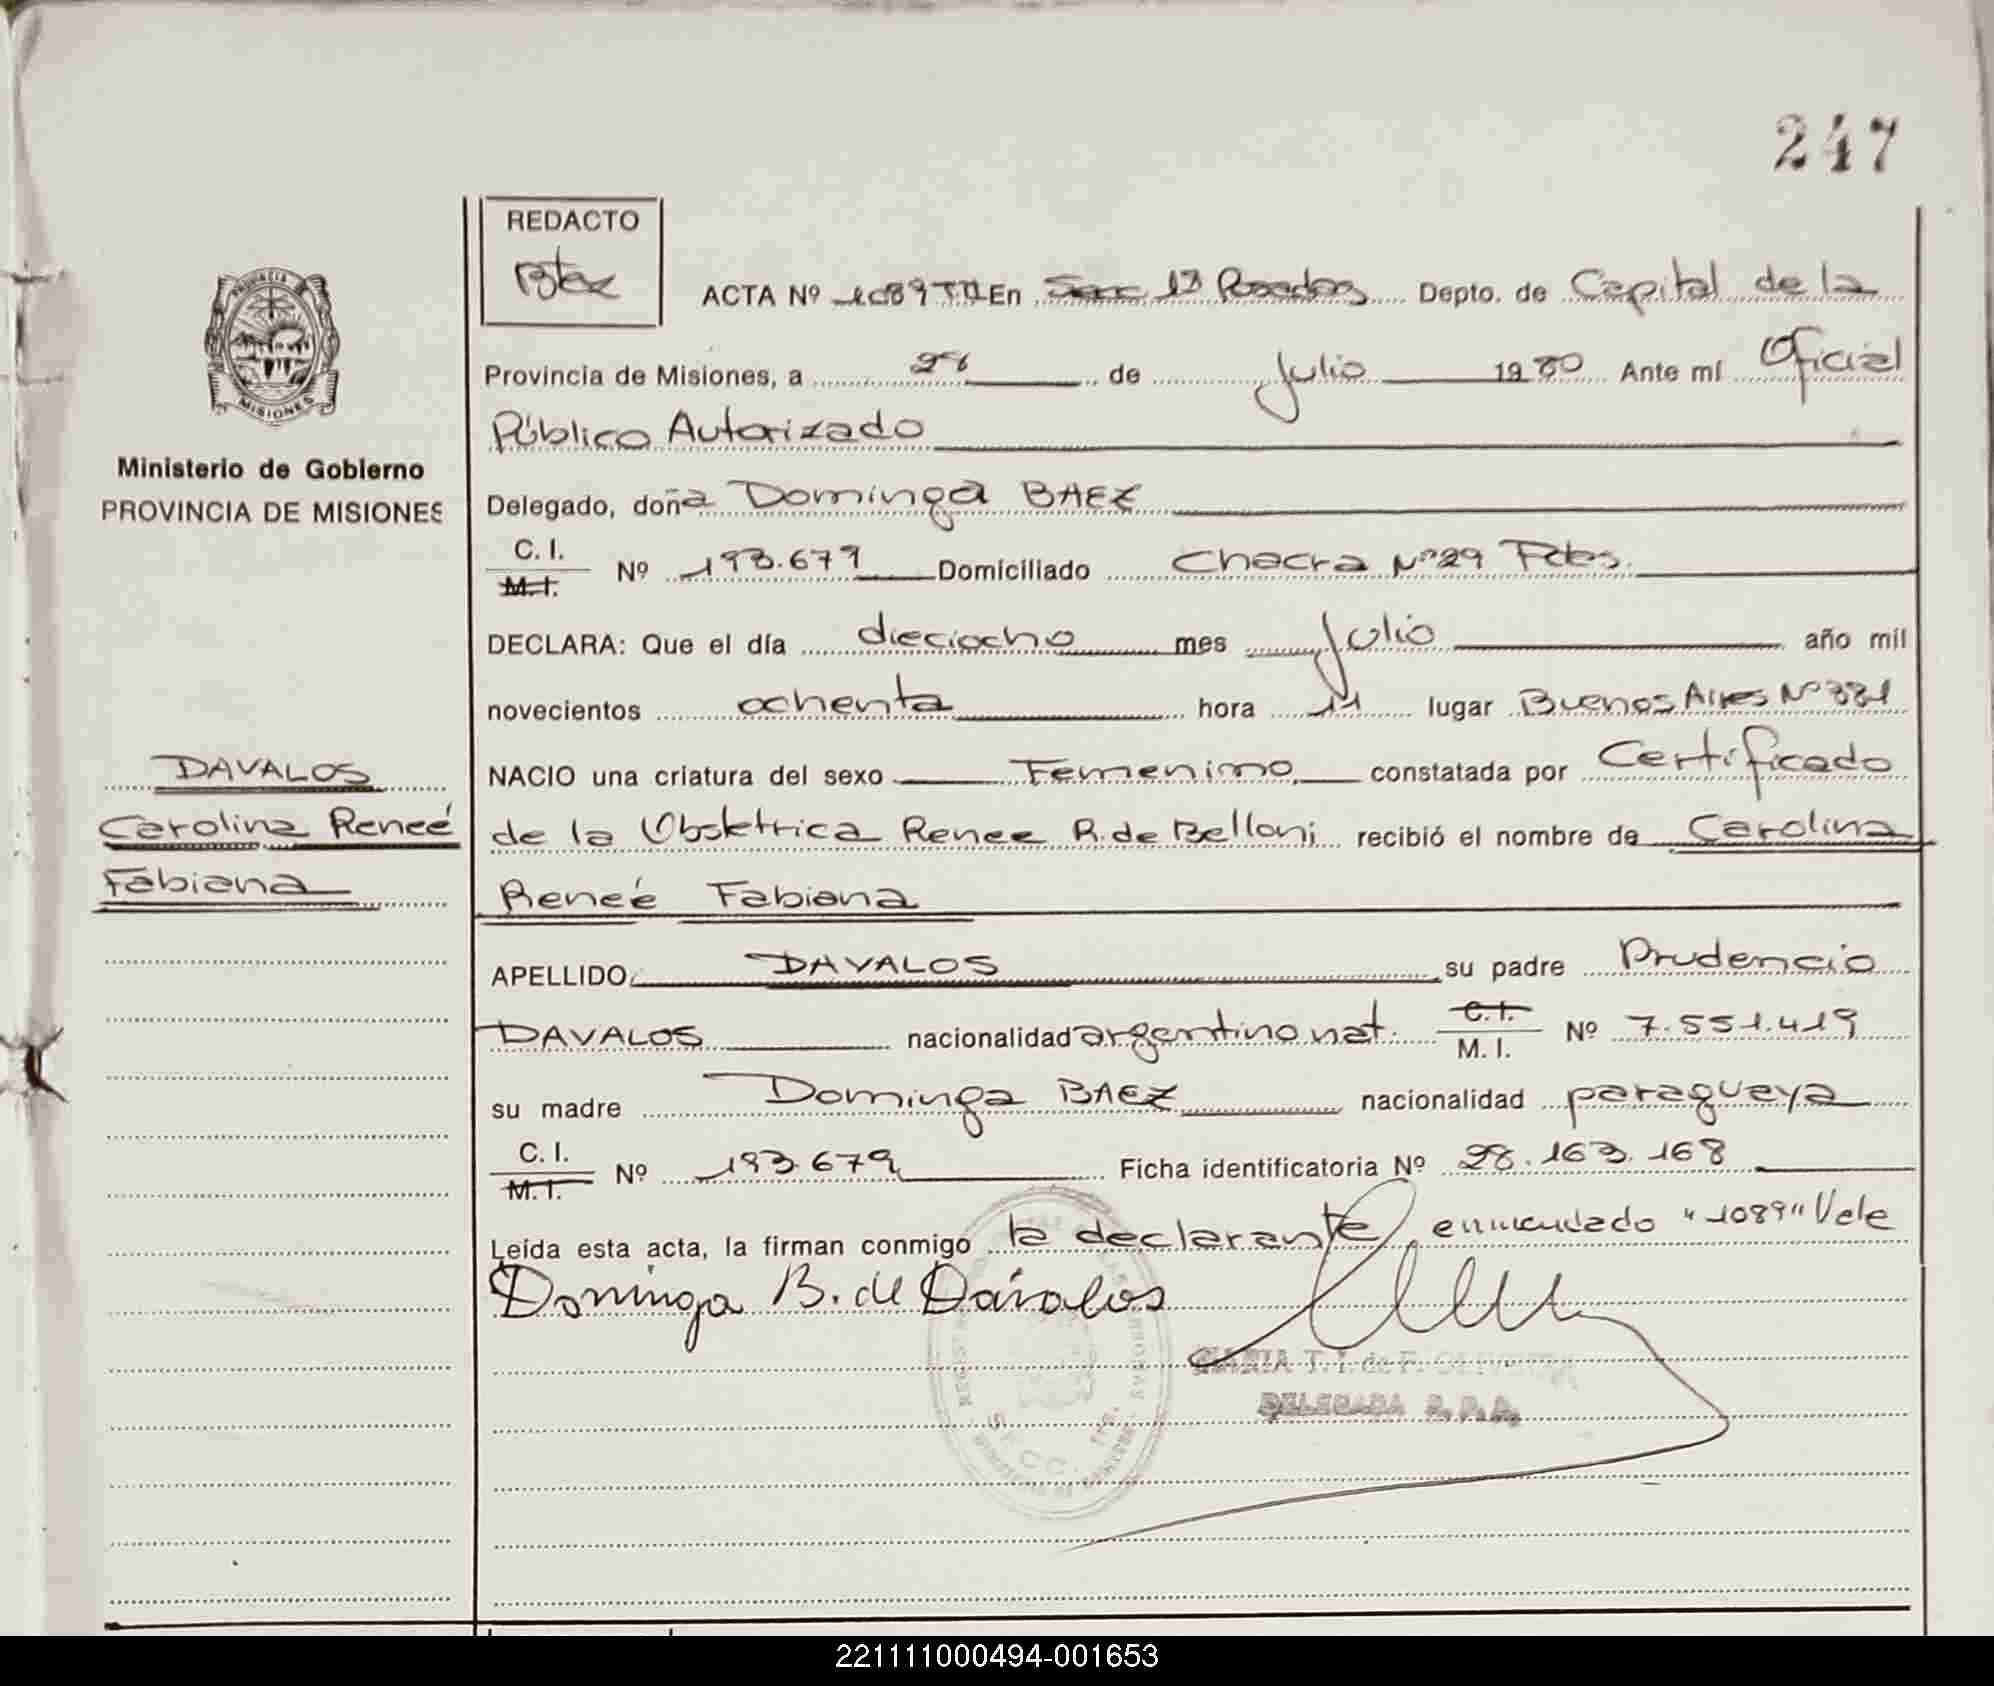 247
REDACTO
ACTA Nº 1089 TII En Secc 1ª Posadas Depto. de Capital de la
PROVINCIA
MISIONES
Provincia de Misiones, a 28 de Julio 1980 Ante mí Oficial
Público Autorizado
Ministerio de Gobierno
PROVINCIA DE MISIONES
Delegado, doña Dominga BAEZ
C. I.
M. I. Nº 193.679 Domiciliado Chacra Nº 29 Pdas.
DECLARA: Que el día dieciocho mes Julio año mil
novecientos ochenta hora 11 lugar Buenos Aires Nº 381
DAVALOS
Carolina Reneé
Fabiana
NACIO una criatura del sexo Femenino constatada por Certificado
de la Obstetrica Renee R. de Belloni recibió el nombre de Carolina
Reneé Fabiana
APELLIDO DAVALOS su padre Prudencio
DAVALOS nacionalidad argentino nat. C. I.
M. I. Nº 7.551.419
su madre Dominga BAEZ nacionalidad paraguaya
C. I.
M. I. Nº 193.679 Ficha identificatoria Nº 28.163.168
Leída esta acta, la firman conmigo la declarante, enmendado "1089" Vale
Dominga B. de Dávalos
MARIA T. I. de F. OLIVEIRA
DELEGADA R. P. P.
221111000494-001653